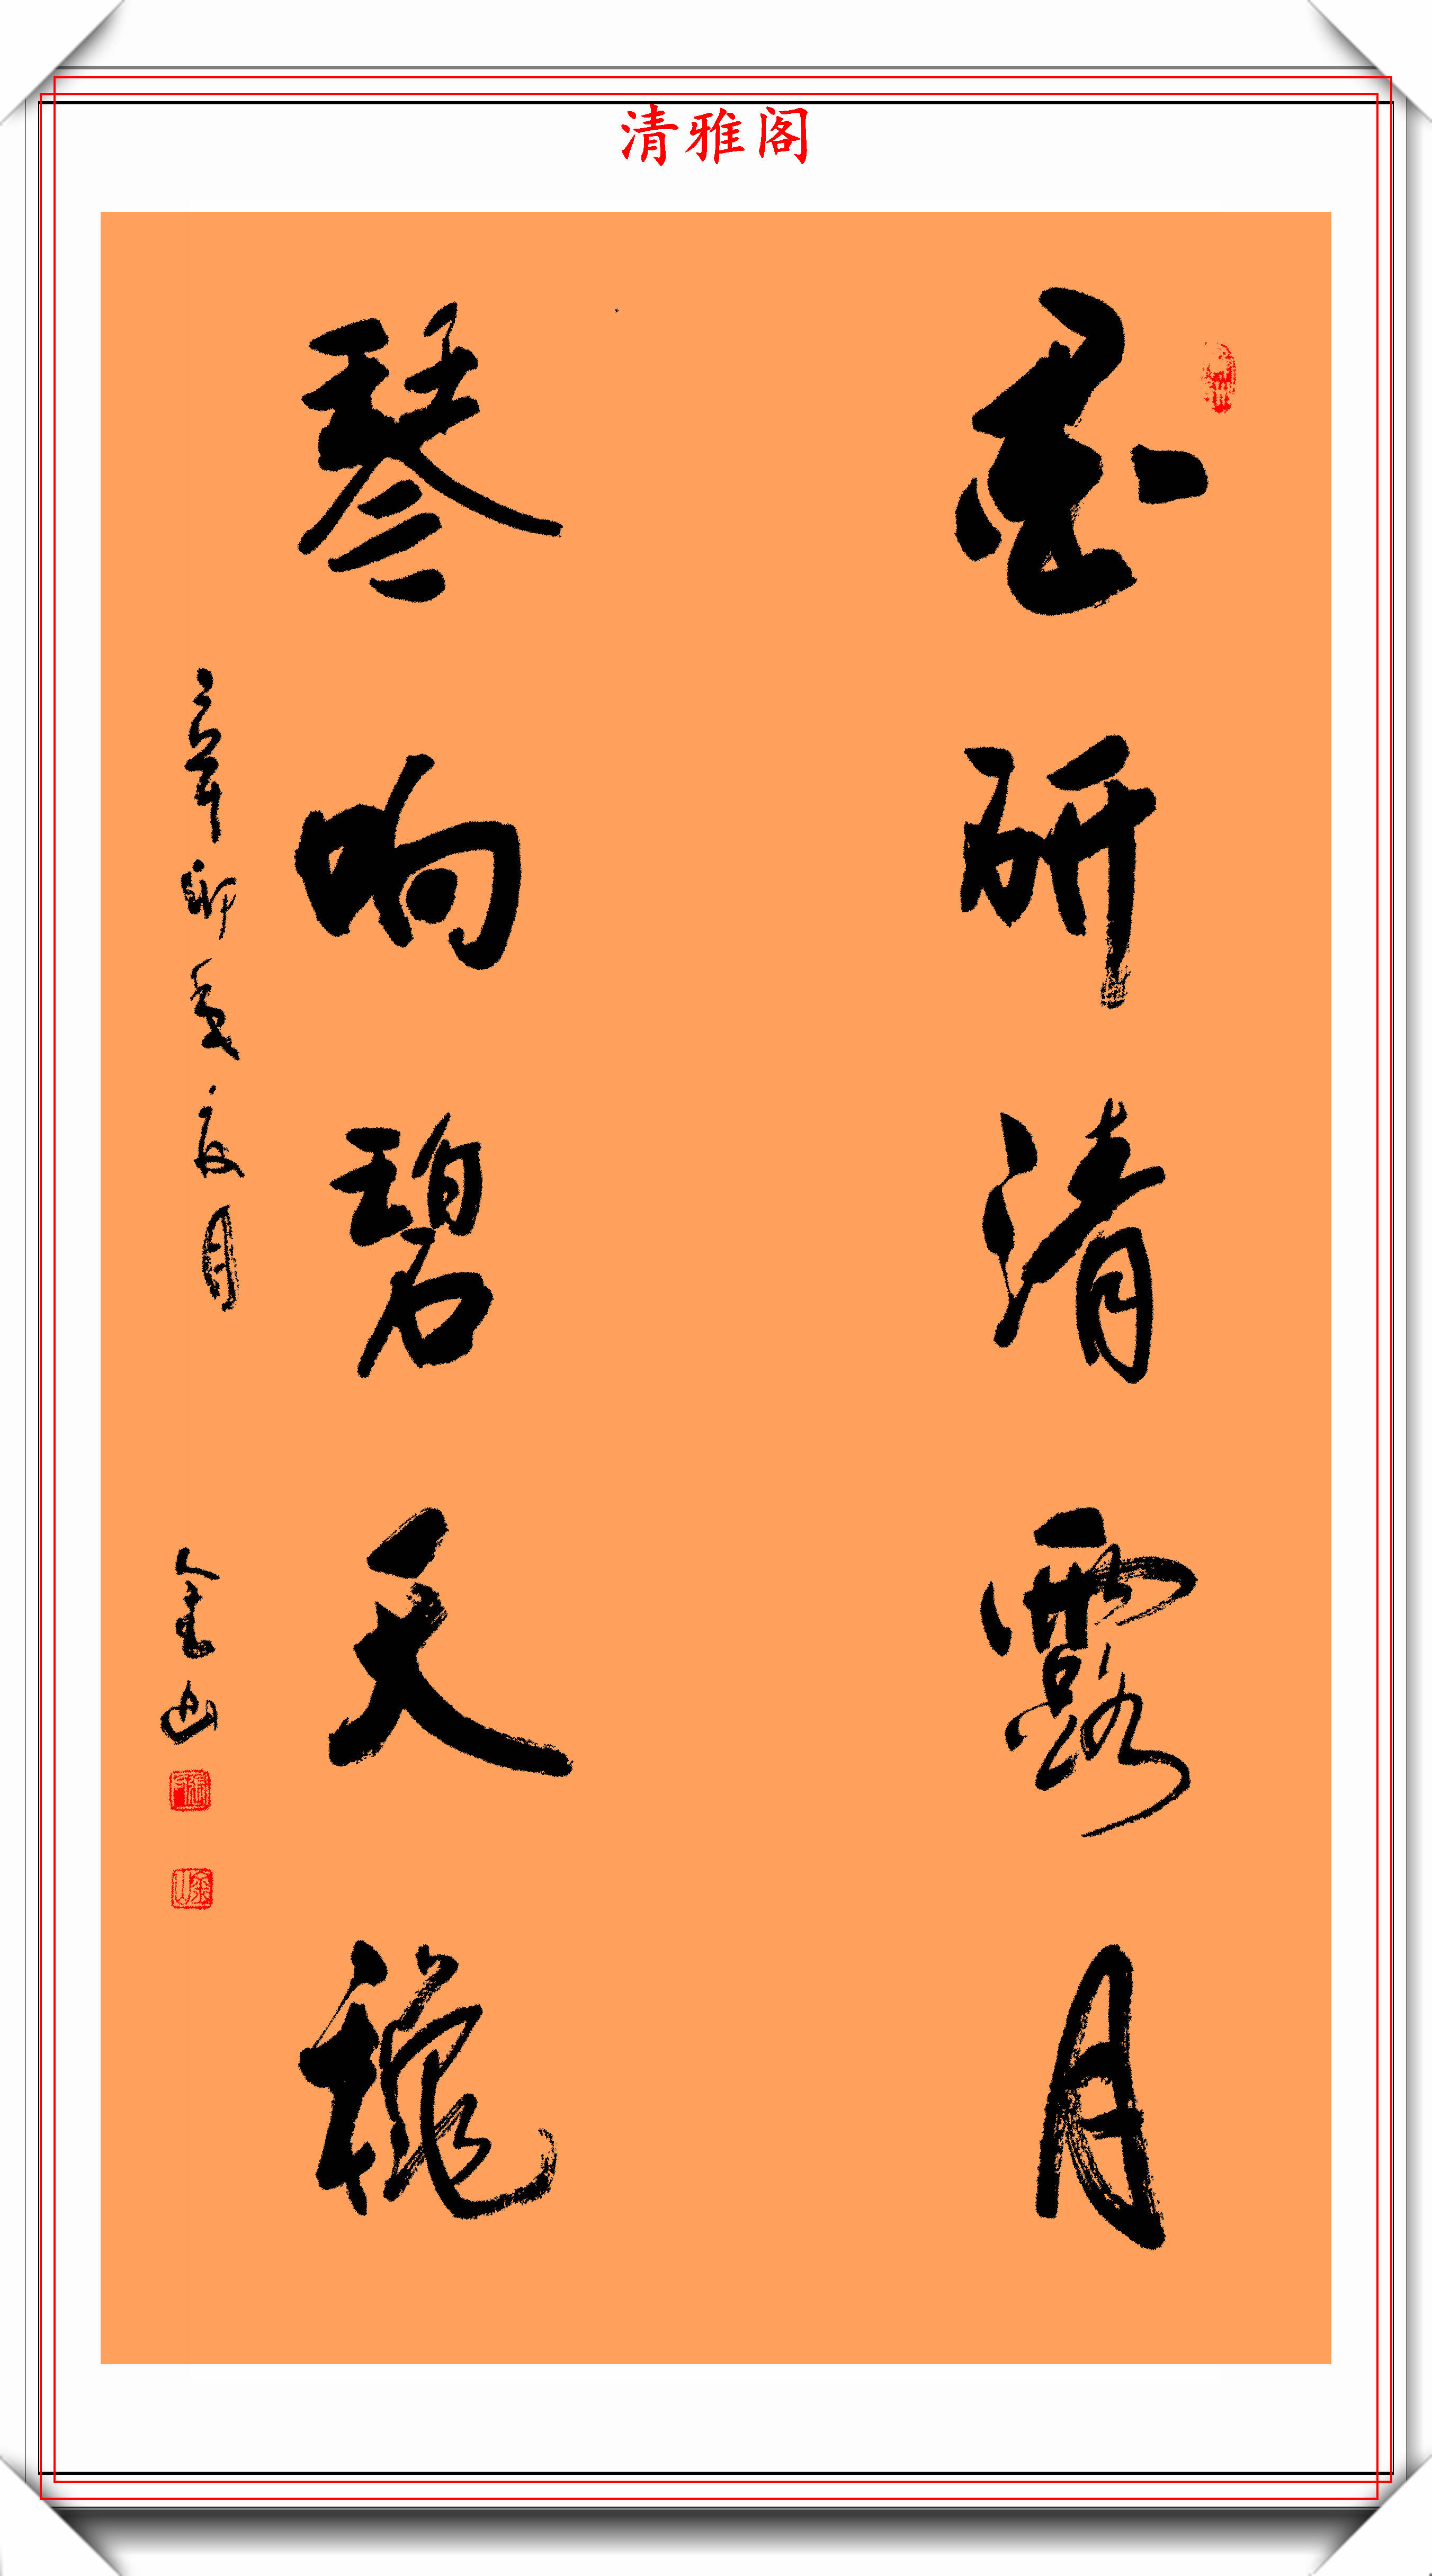 清雅阁
墨研清露月
琴响碧天秋
辛卯年夏月
金山